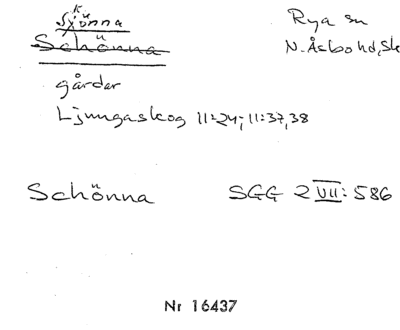 Skönna Rya sn
Schönna N. Åsbo hd, Sk
gårdar
Ljungaskog 11:24; 11:37,38
Schönna SGG 2 VII: 586
Nr 16437